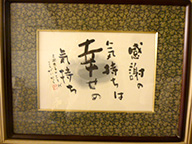 感謝の
気持ちは
幸せの
気持ち